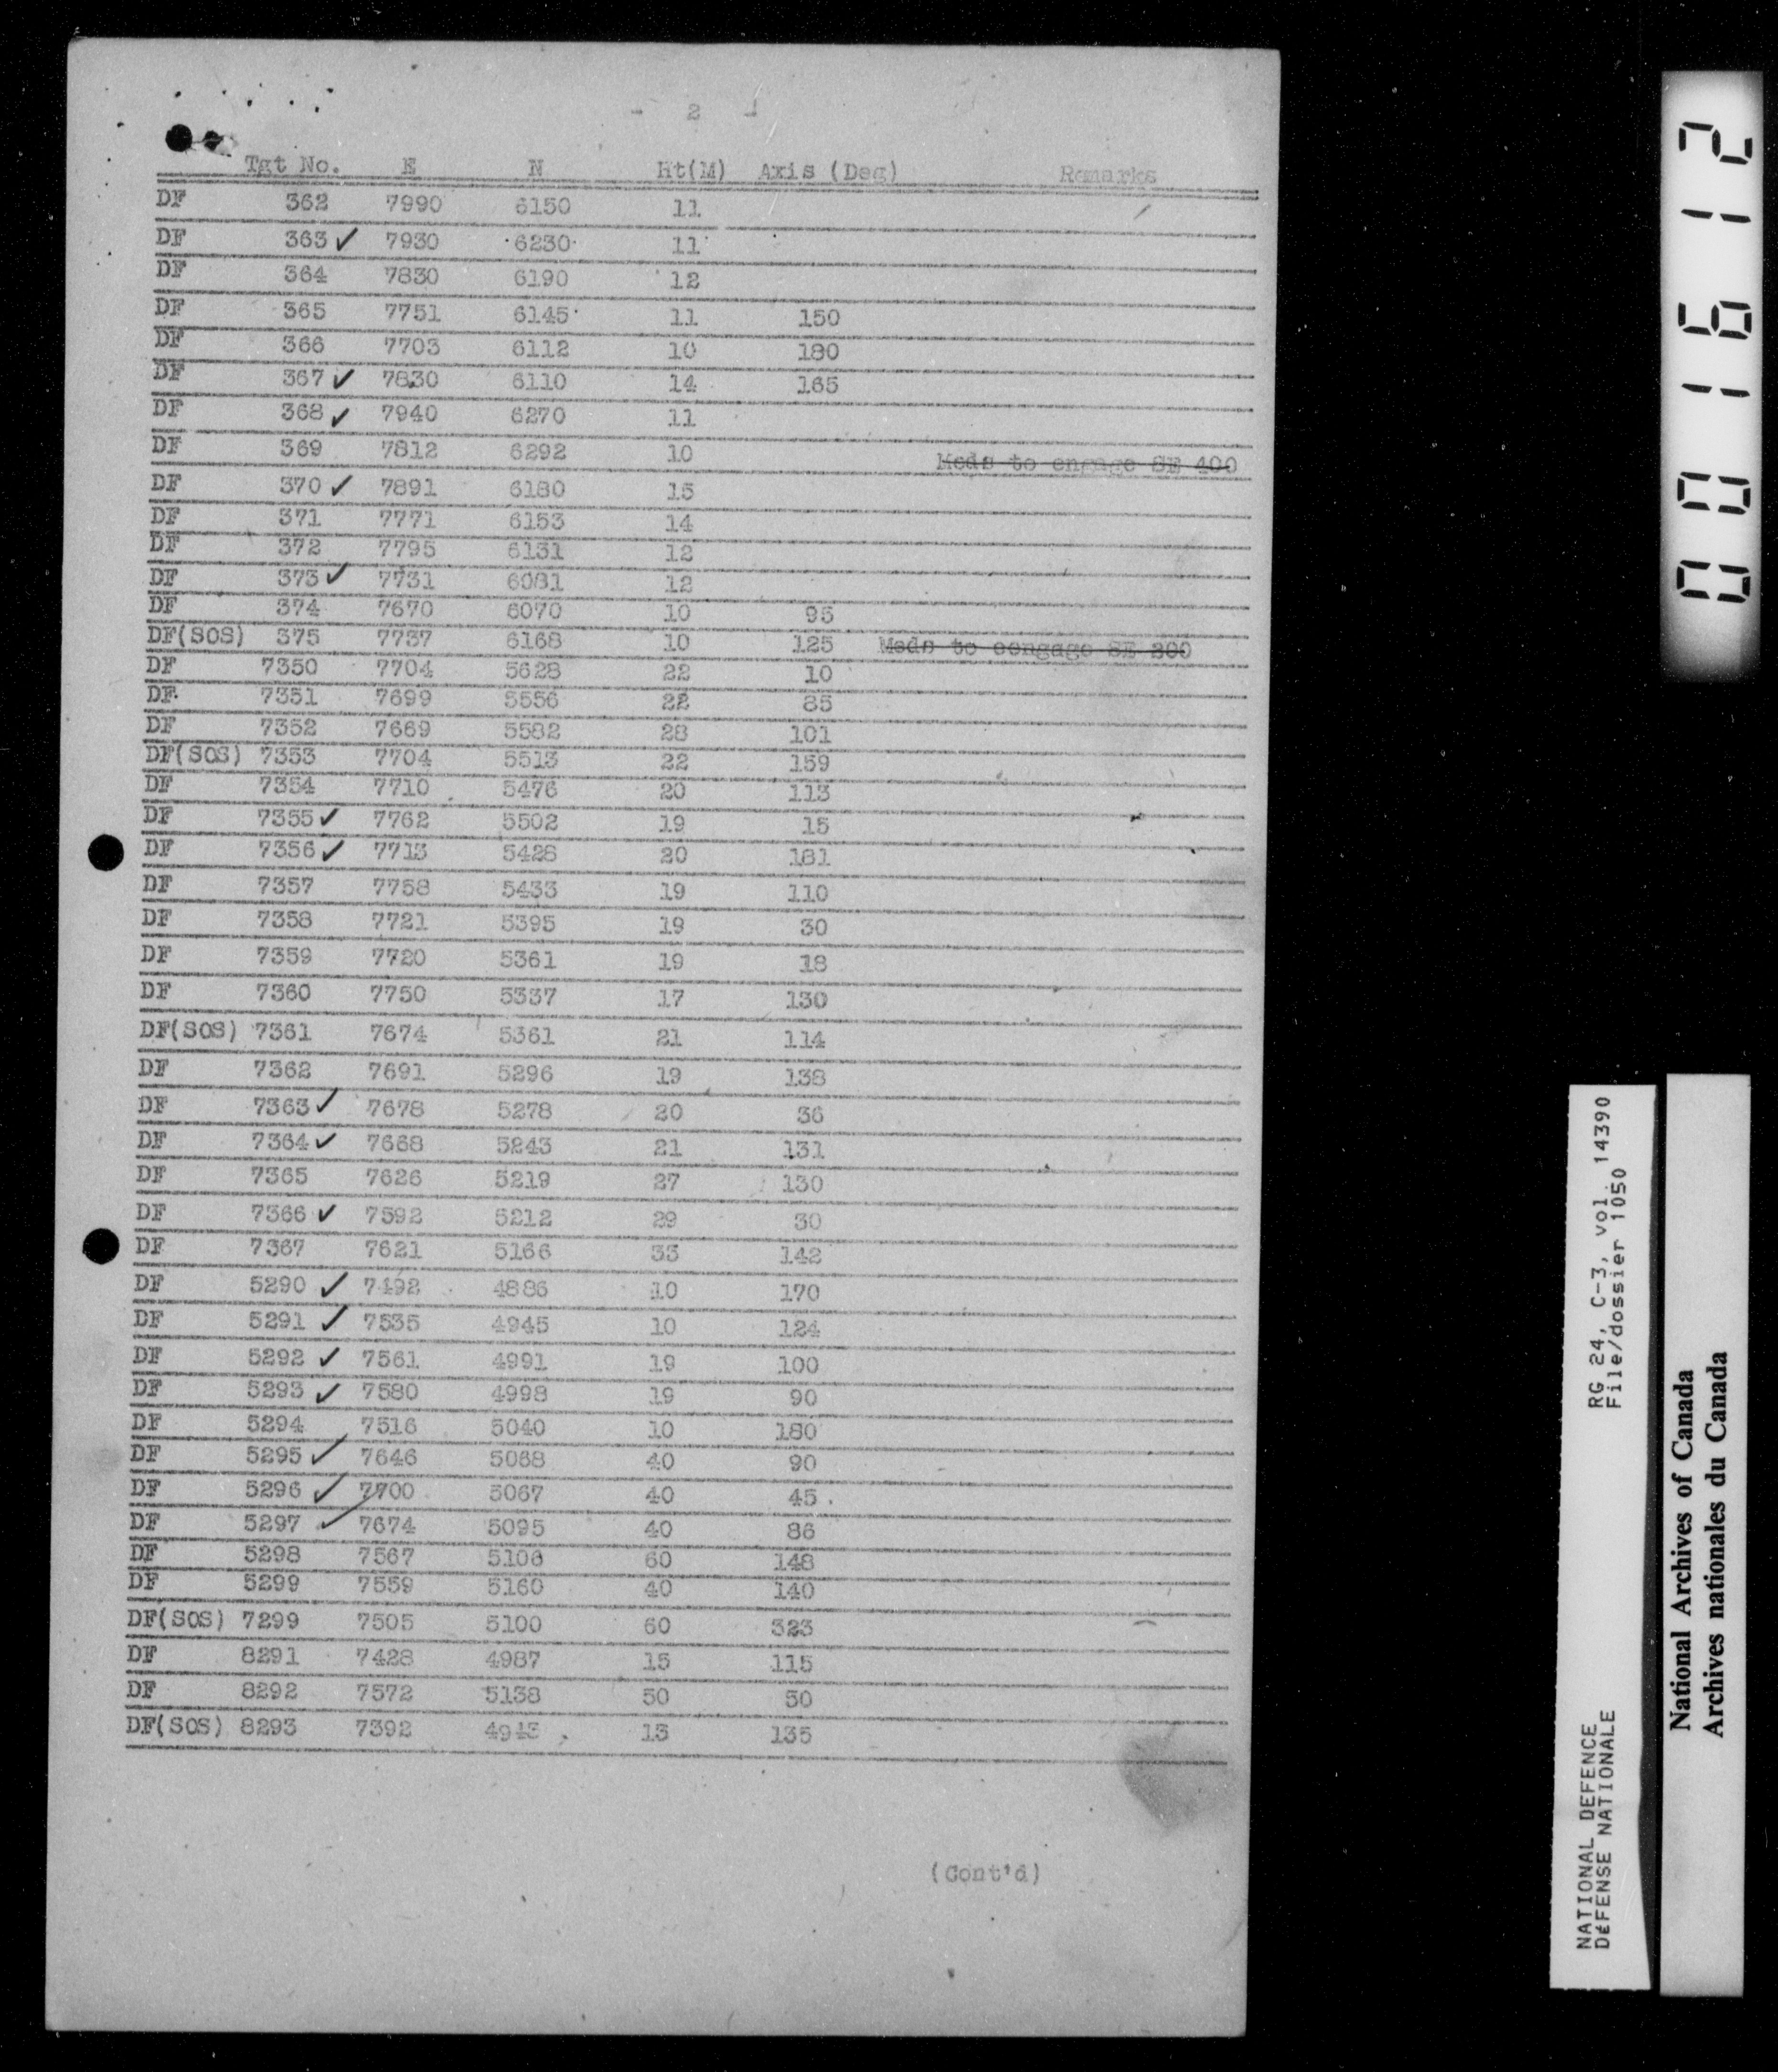 - 2 -
Tgt No. E N Ht(M) Axis (Deg) Remarks
DF 362 7990 6150 11
DF 363 ✓ 7930 6230 11
DF 364 7830 6190 12
DF 365 7751 6145 11 150
DF 366 7703 6112 10 180
DF 367 ✓ 7830 6110 14 165
DF 368 ✓ 7940 6270 11
DF 369 7812 6292 10 Meds to engage SE 400
DF 370 ✓ 7891 6180 15
DF 371 7771 6153 14
DF 372 7795 6131 12
DF 373 ✓ 7731 6081 12
DF 374 7670 6070 10 95
DF(SOS) 375 7737 6168 10 125 Meds to eengage SE 300
DF 7350 7704 5628 22 10
DF 7351 7699 5556 22 85
DF 7352 7669 5582 28 101
DF(SOS) 7353 7704 5513 22 159
DF 7354 7710 5476 20 113
DF 7355 ✓ 7762 5502 19 15
DF 7356 ✓ 7713 5428 20 181
DF 7357 7758 5433 19 110
DF 7358 7721 5395 19 30
DF 7359 7720 5361 19 18
DF 7360 7750 5337 17 130
DF(SOS) 7361 7674 5361 21 114
DF 7362 7691 5296 19 138
DF 7363 ✓ 7678 5278 20 36
DF 7364 ✓ 7668 5243 21 131
DF 7365 7626 5219 27 130
DF 7366 ✓ 7592 5212 29 30
DF 7367 7621 5166 33 142
DF 5290 ✓ 7492 4886 10 170
DF 5291 ✓ 7535 4945 10 124
DF 5292 ✓ 7561 4991 19 100
DF 5293 ✓ 7580 4998 19 90
DF 5294 7516 5040 10 180
DF 5295 ✓ 7646 5068 40 90
DF 5296 ✓ 7700 5067 40 45
DF 5297 ✓ 7674 5095 40 86
DF 5298 7567 5106 60 148
DF 5299 7559 5160 40 140
DF(SOS) 7299 7505 5100 60 323
DF 8291 7428 4987 15 115
DF 8292 7572 5138 50 50
DF(SOS) 8293 7392 4943 13 135
(Cont'd)
001612
RG 24, C-3, vol. 14390
File/dossier 1050
NATIONAL DEFENCE
DÉFENSE NATIONALE
National Archives of Canada
Archives nationales du Canada